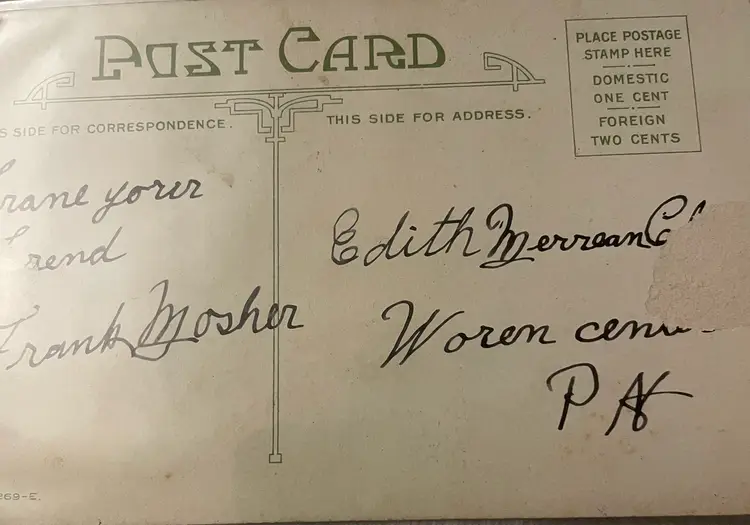 POST CARD
PLACE POSTAGE
STAMP HERE
DOMESTIC
ONE CENT
FOREIGN
TWO CENTS
S SIDE FOR CORRESPONDENCE.
THIS SIDE FOR ADDRESS.
yorer
frend
Frank Mosher
Edith Merrean
Woren cen
PA
269-E.